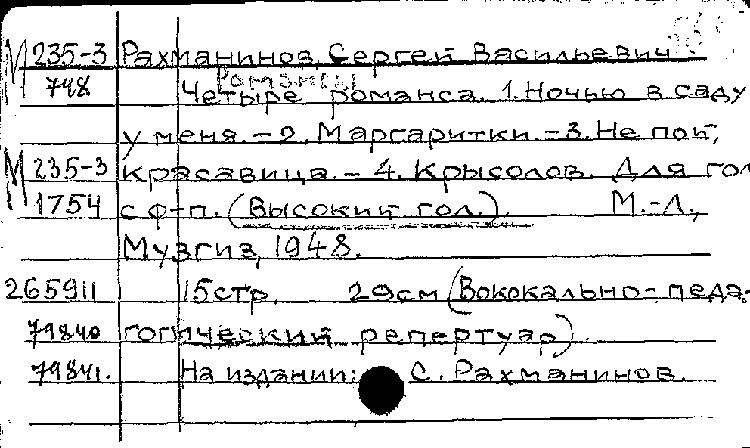 М 235-3 Рахманинов, Сергей Васильевич
748 Романсы
Четыре романса. 1. Ночью в саду
у меня. - 2. Маргаритки. - 3. Не пой,
М 235-3 красавица. - 4. Крысолов. Для гол
1754 с ф-п. (Высокий гол.). М.-Л.,
Музгиз, 1948.
265911 15 стр. 29 см (Вококально-педа-
79840 гогический репертуар)
79841. На издании: С. Рахманинов.